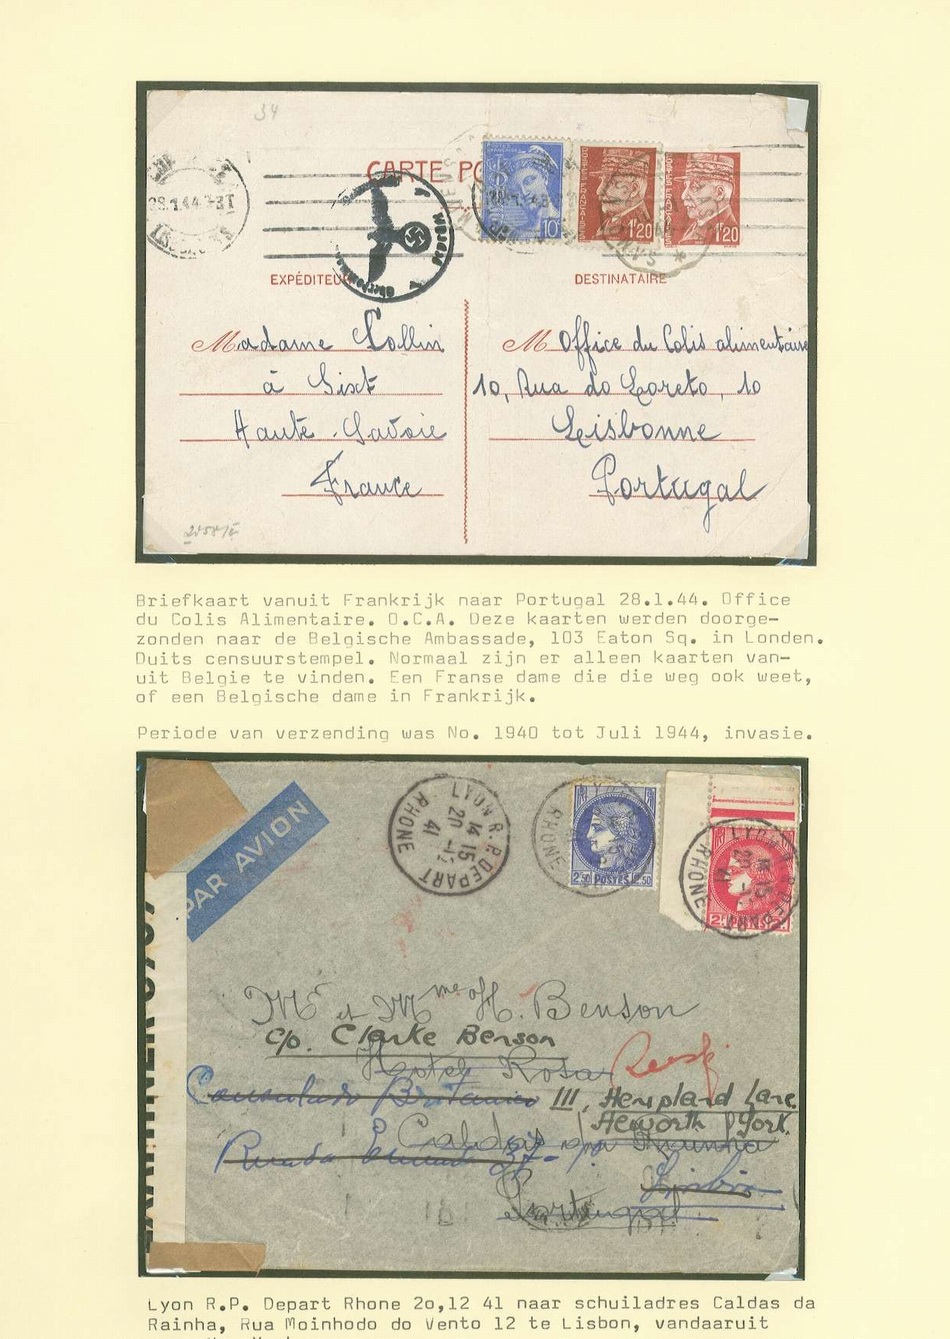 34
CARTE PO
10
1'20
1'20
28.1.44
EXPÉDITEUR
DESTINATAIRE
Madame Collin
M Office du Colis alimentaire
à Sixt
10, Rua do Loreto, 10
Haute-Savoie
Lisbonne
France
Portugal
Briefkaart vanuit Frankrijk naar Portugal 28.1.44. Office
du Colis Alimentaire. O.C.A. Deze kaarten werden doorge-
zonden naar de Belgische Ambassade, 103 Eaton Sq. in Londen.
Duits censuurstempel. Normaal zijn er alleen kaarten van-
uit Belgie te vinden. Een Franse dame die die weg ook weet,
of een Belgische dame in Frankrijk.
Periode van verzending was No. 1940 tot Juli 1944, invasie.
PAR AVION
LYON R.P. DEPART
14 15
20 -12
41
RHONE
2'50 POSTES 2'50
EXAMINER
Mr et Mme H. Benson
c/o. Clarke Benson
Hotel Rosa
Consulado Britanico 111, Hempland Lane
Heworth York.
Caldas da Rainha
Lisboa
Portugal
Lyon R.P. Depart Rhone 2o,12 41 naar schuiladres Caldas da
Rainha, Rua Moinhodo do Vento 12 te Lisbon, vandaaruit